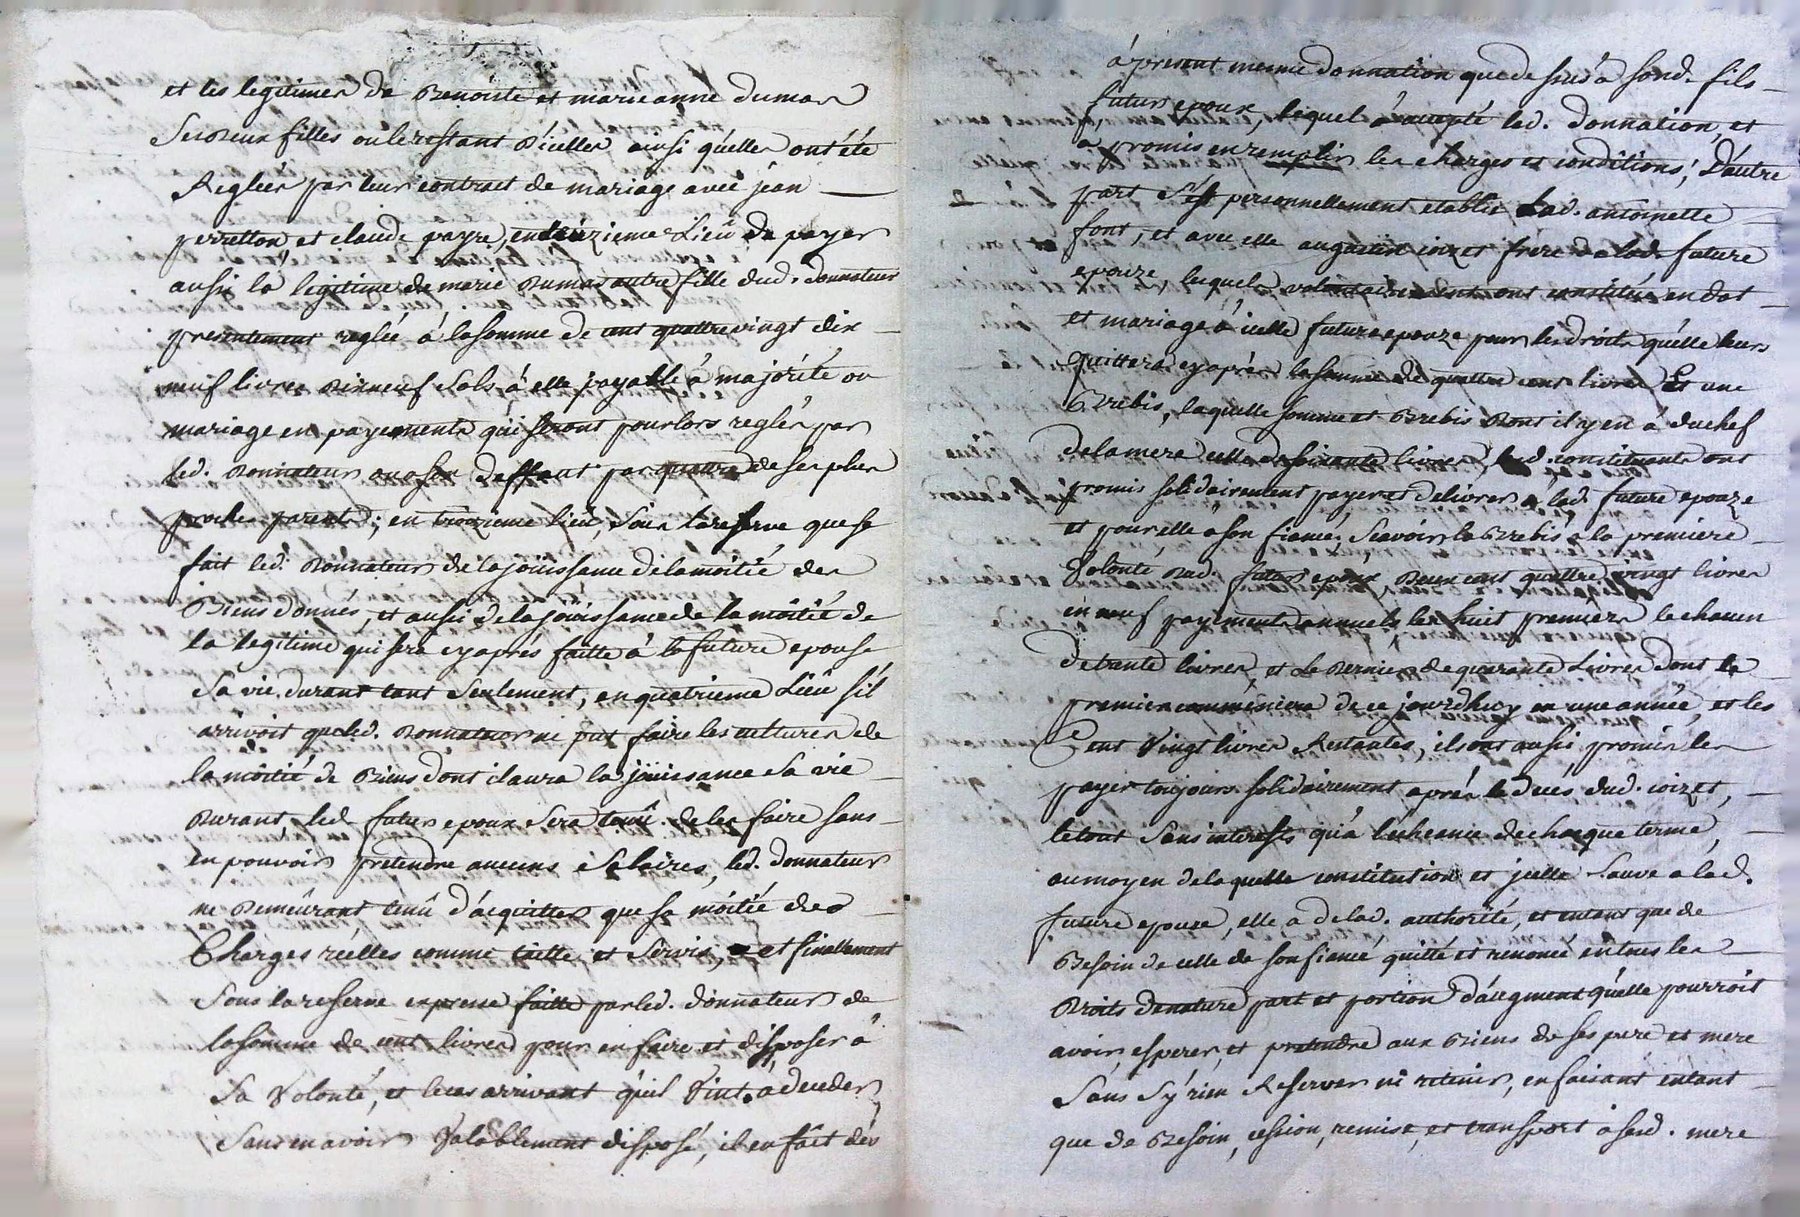 et les legitimes de Benoiste et marie anne dumas
Ses Deux filles ou le restant d'icelles ainsi qu'elles ont été
Reglées par leur contract de mariage avec jean
perretton et claude payre, en deuzieme Lieu de payer
aussi la legitime de marie Dumas autre fille dud. donnateur
presentement reglée à la somme de cent quattre vingt dix
neuf livres Dixneuf Sols à elle payable à majorité ou
mariage en payements qui seront pour lors reglés par
led. Donnateur ou a son deffaut par quattre de ses plus
proches parents; en troizieme lieu, sous la reserve que se
fait led. Donnateur de la joüissance de la moitié des
Biens donnés, et aussi de la joüissance de la moitié de
la legitime qui sera cy après faitte à la future epouse
Sa vie durant tant Seulement, en quatrieme Lieu s'il
arrivoit que led. Donnateur ne put faire les cultures de
la moitié de Biens dont il aura la joüissance Sa vie
Durant, led. futur epoux Sera tenû de les faire sans
en pouvoir pretendre aucuns Salaires, led. donnateur
ne Demeurant tenû d'acquitter que sa moitié des
Charges réelles comme taille et Servis, et finallement
Sous la reserve expresse faitte par led. donnateur de
la somme de cent livres pour en faire et disposer à
Sa Volonté, et le cas arrivant qu'il Vint à deceder
Sans en avoir Valablement disposé, il en fait dès
à present mesme donnation que de sus à sond. fils
futur epoux, lequel à accepté lad. donnation, et
a promis en remplir les charges et conditions; D'autre
part S'est personnellement etablie Lad. antoinette
font, et avec elle augustin coizet frere de lad. future
epouze, lesquels volontairement ont constitué en dot
et mariage à icelle future epouze pour les droits qu'elle leurs
quittera cy après la somme de quattre cent livres Et une
Brebis, laquelle somme et Brebis Dont il y en à du chef
de la mere celle de soixante livres, lesd. constituants ont
promis solidairement payer et delivrer a lad. future epouze
et pour elle a son fiancé, Scavoir la Brebis à la premiere
Volonté dud. futur epoux, Deux cent quattre vingt livres
en neuf payements annuels les huit premiers le chacun
de trente livres, et Le Dernier de quarante Livres dont le
premier commencera de ce jourdhuy en une année, et les
Cent Vingt livres Restantes, ils ont aussi promis les
payer toujours solidairement après le decés dud. coizet,
le tout Sans interests qu'a l'écheance de chacque terme,
au moyen de laquelle constitution et icelle Sauve a lad.
future epouse, elle a de lad. authorité, et entant que de
Besoin de celle de son fiancé quitté et renoncé en tous les
Droits de nature part et portion d'augment qu'elle pourroit
avoir, esperer, et pretendre aux Biens de ses pere et mere
Sans S'y rien Reserver ni retenir, en faisant entant
que de Besoin, cession, remise, et transport à sad. mere